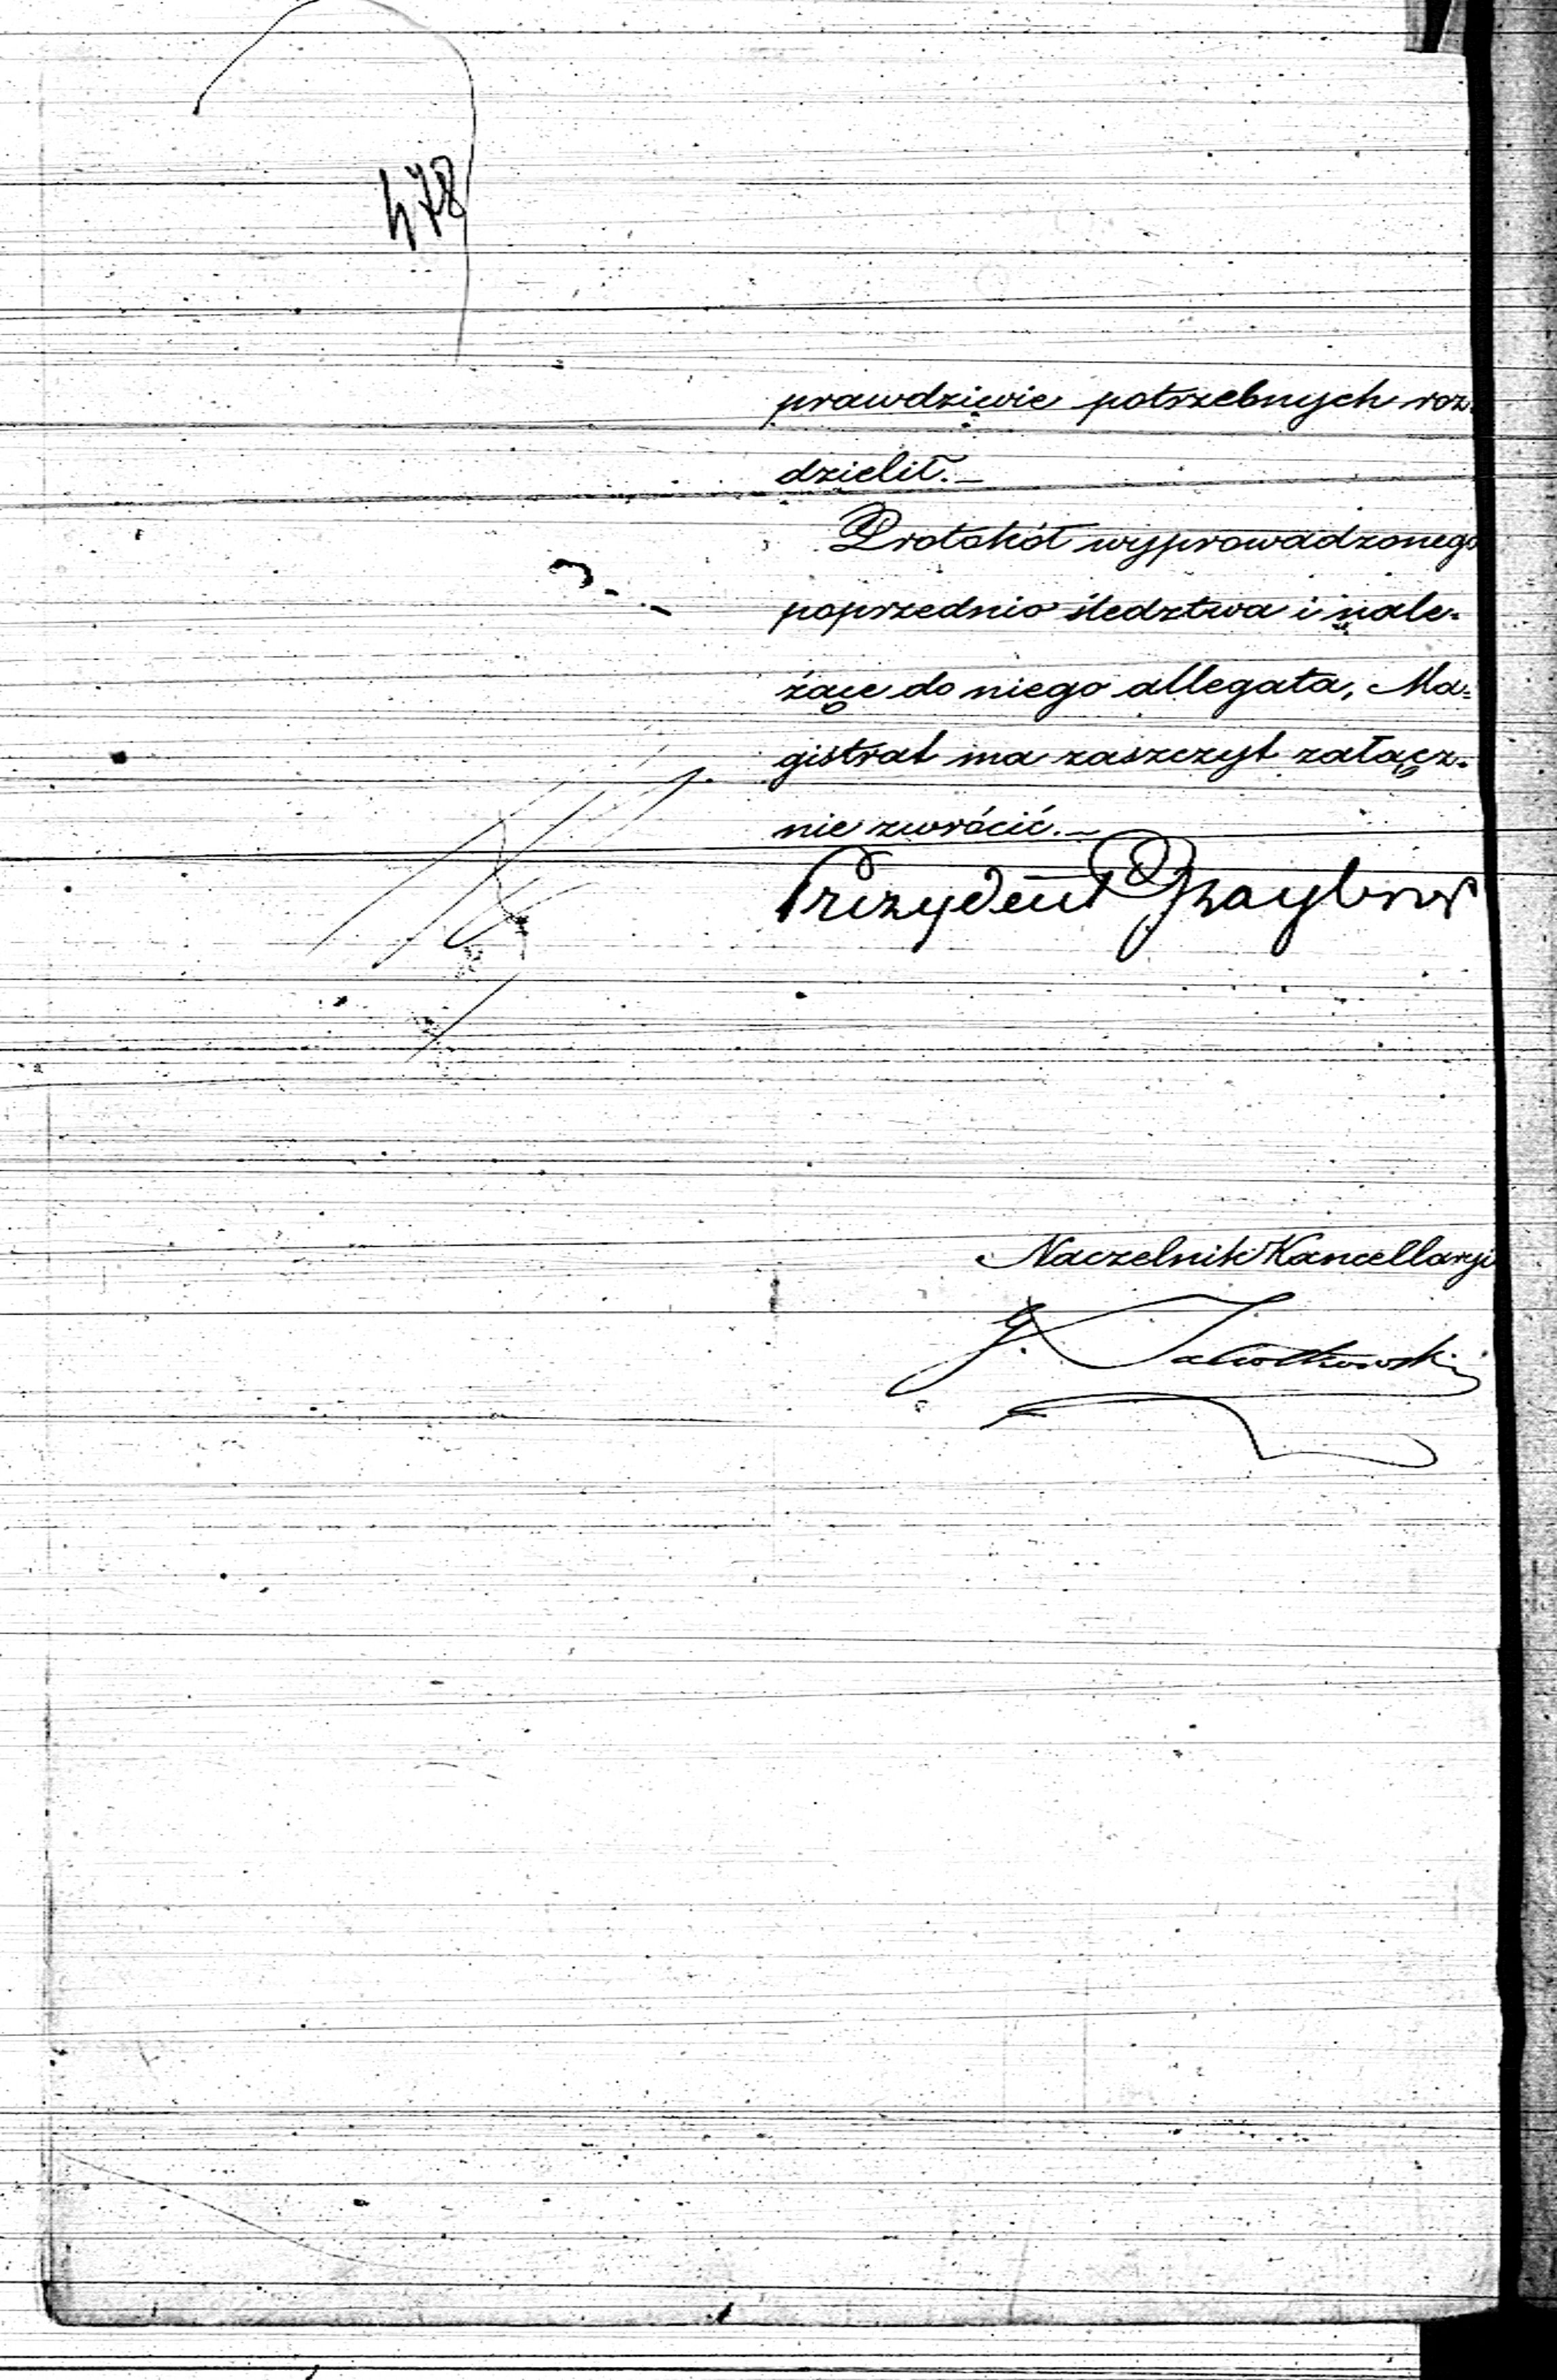 478
prawdziwie potrzebnych roz-
dzielił. —
Protokół wyprowadzonego
poprzednio śledztwa i nale-
żące do niego allegata, Ma-
gistrat ma zaszczyt załącz-
nie zwrócić. —
Prezydent
Naczelnik Kancellaryi
J.